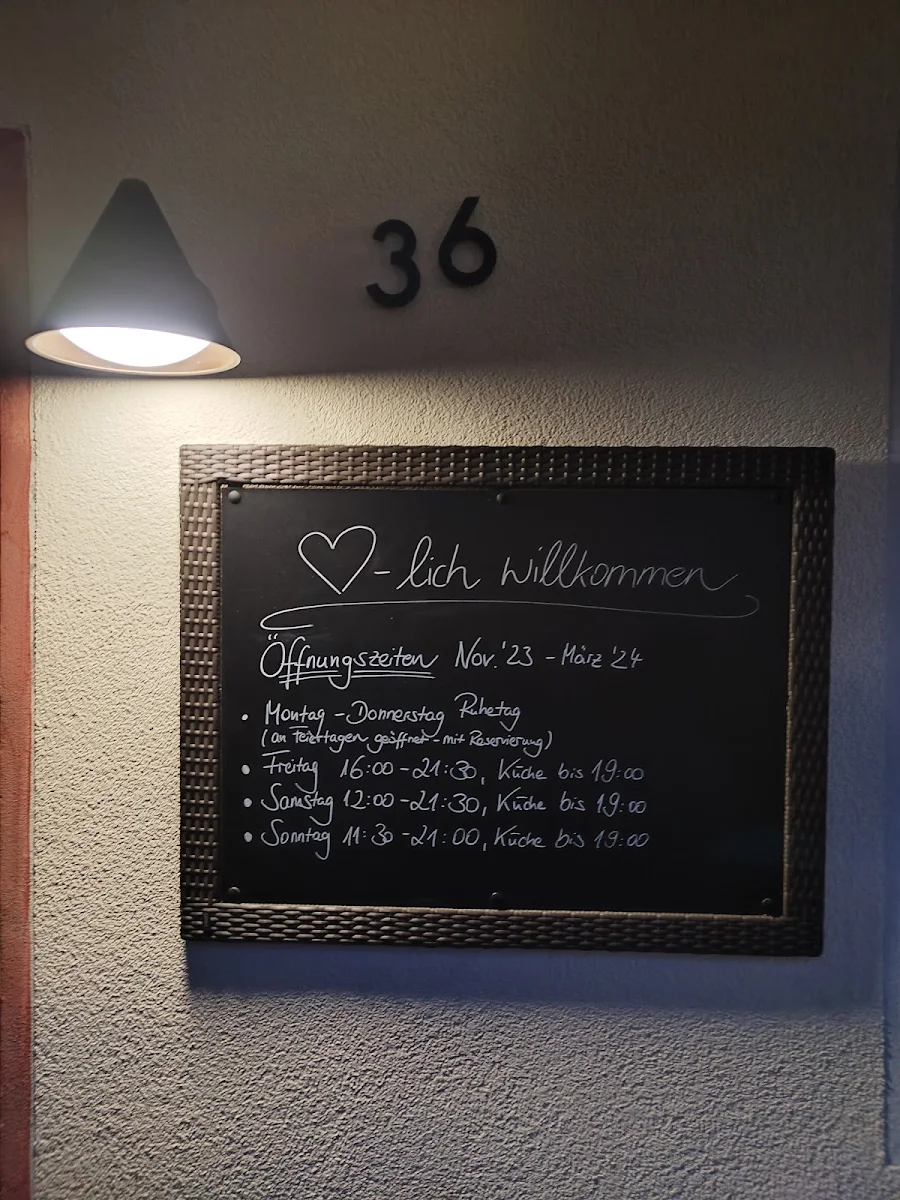 36
♡-lich willkommen
Öffnungszeiten Nov. '23 - März '24
• Montag - Donnerstag Ruhetag
(an Feiertagen geöffnet - mit Reservierung)
• Freitag 16:00-21:30, Küche bis 19:00
• Samstag 12:00-21:30, Küche bis 19:00
• Sonntag 11:30-21:00, Küche bis 19:00